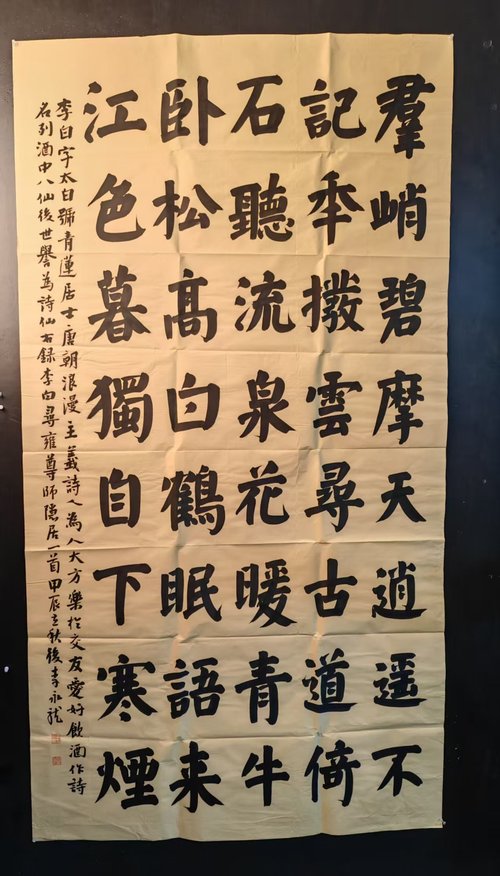 羣峭碧摩天逍遥不
記年撥雲尋古道倚
石聽流泉花暖青牛
卧松髙白鶴眠語来
江色暮獨自下寒煙
李白字太白號青蓮居士唐朝浪漫主義詩人為人大方樂於交友愛好飲酒作詩
名列酒中八仙後世譽為詩仙右録李白尋雍尊師隱居一首甲辰立秋後李永龍